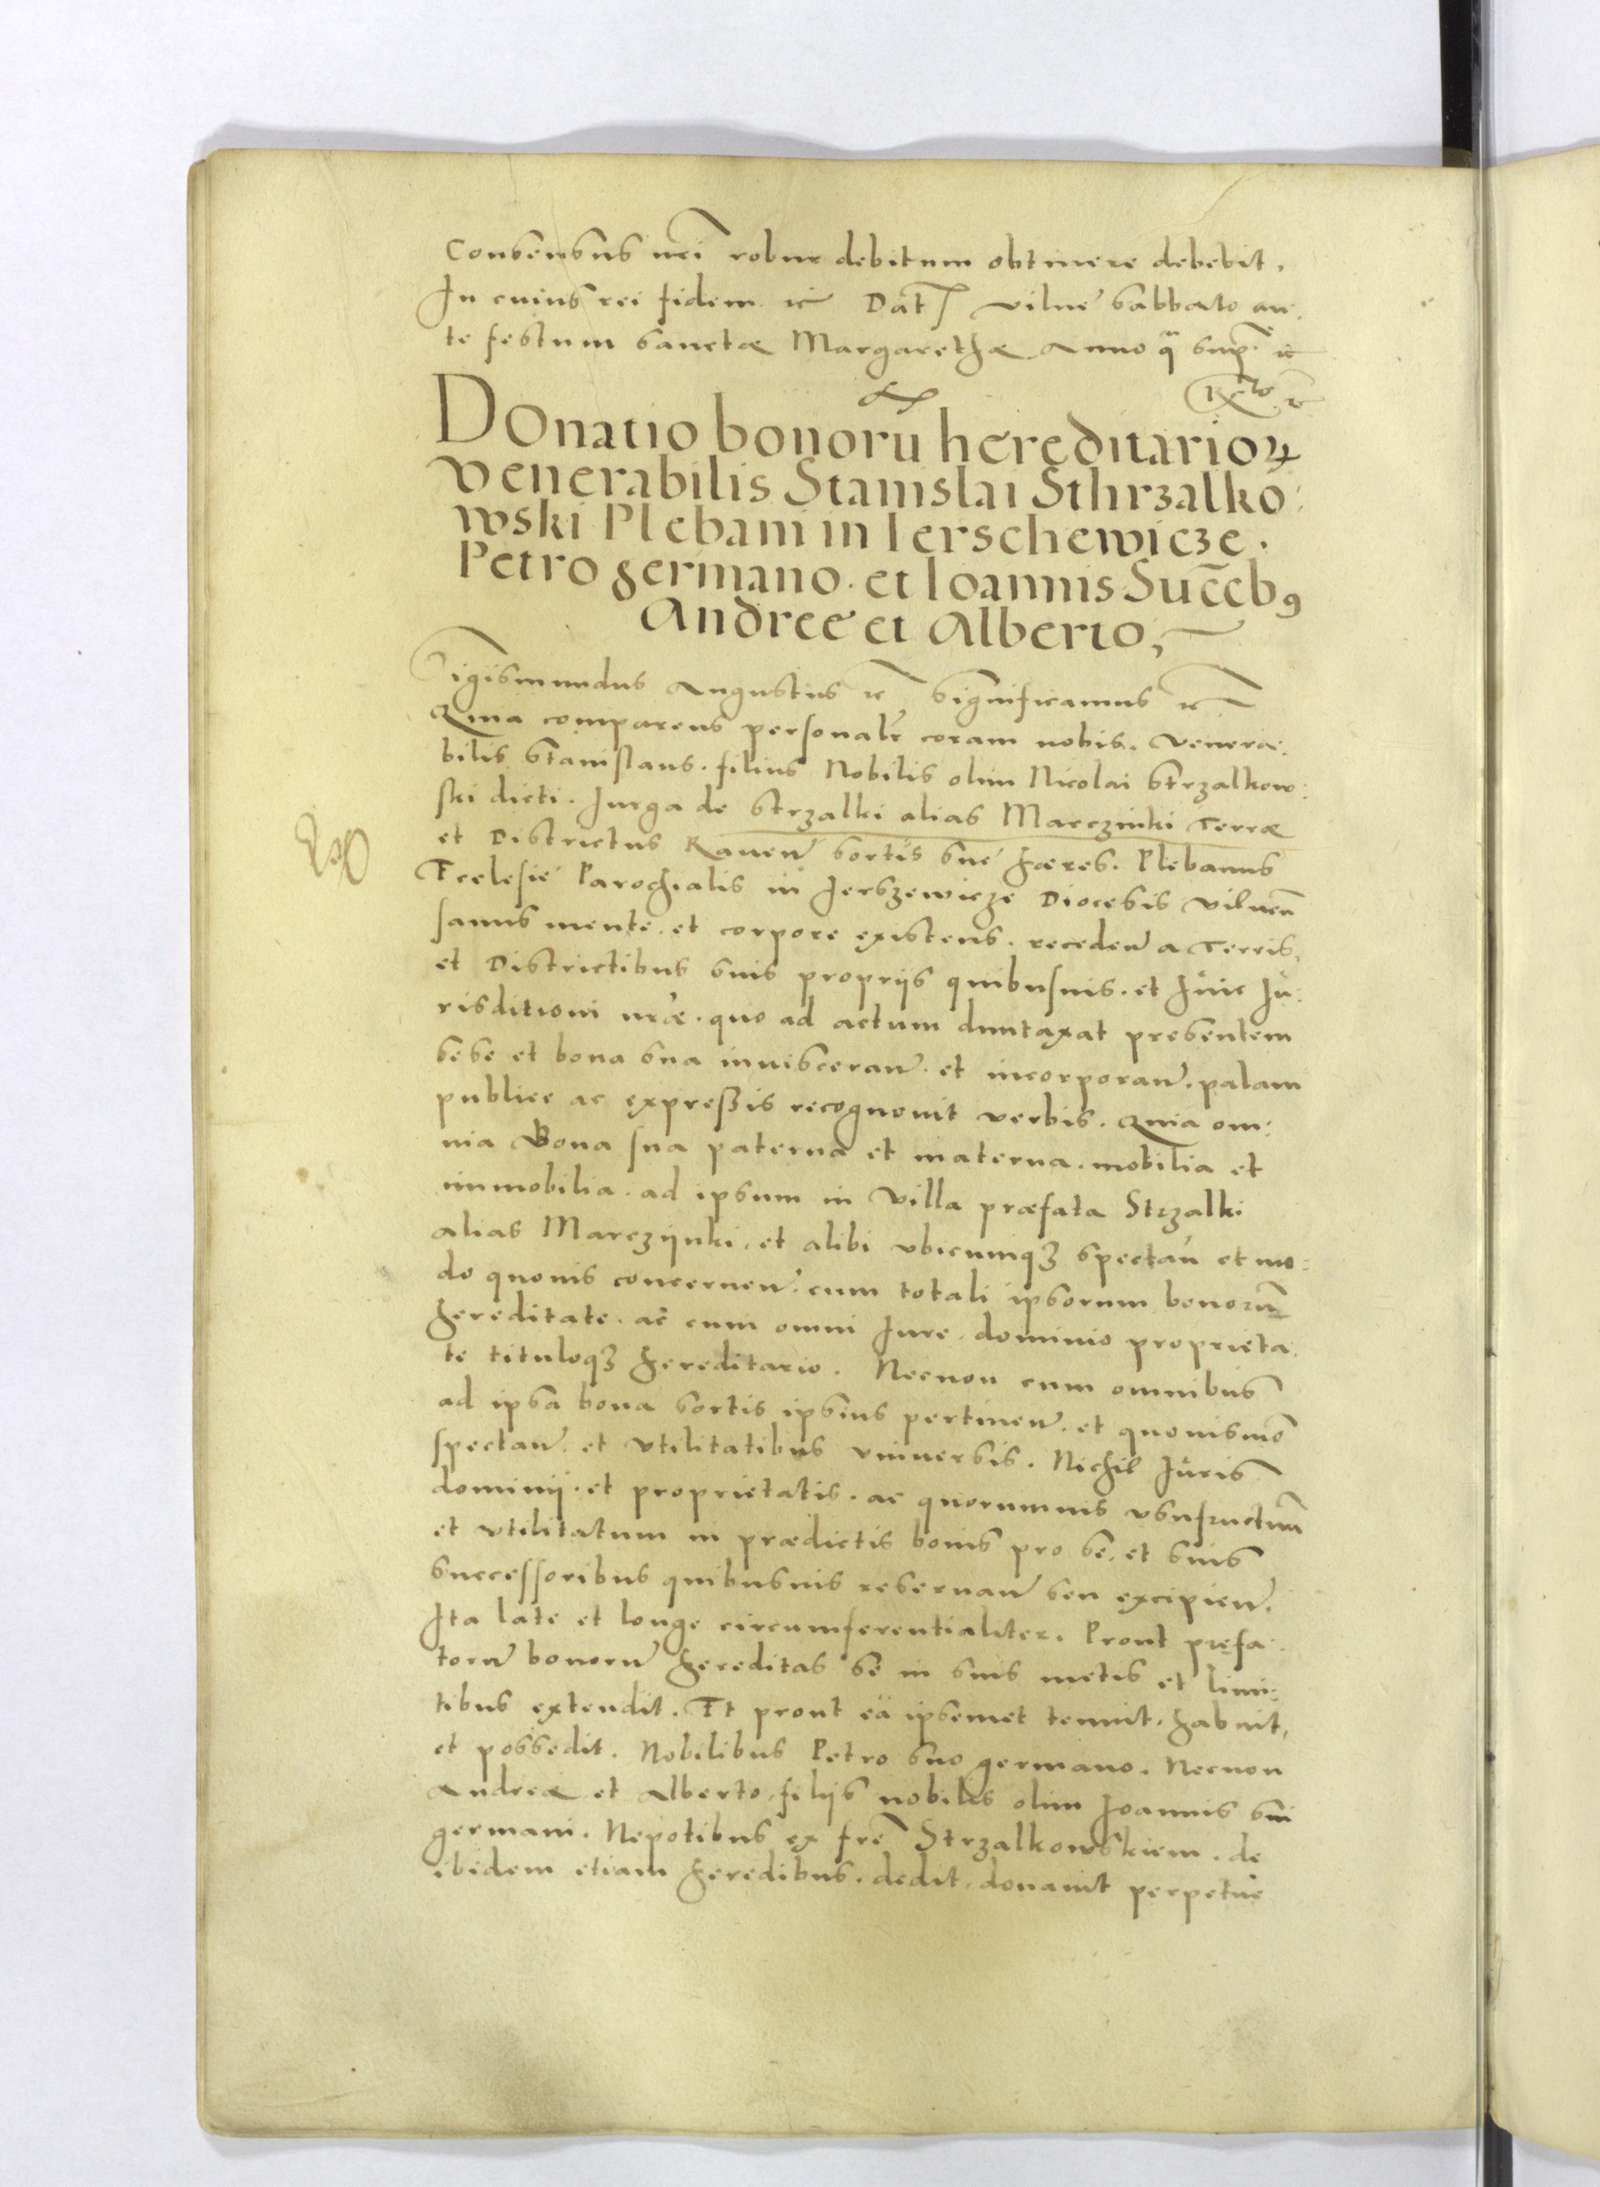 Consensus nri robur debitum obtinere debebit.
In cuius rei fidem ꝛc Dat Vilne Sabbato an-
te festum Sanctæ Margarethæ Anno quo supra ꝛc
DOnatio bonorū hereditarioꝝ
Venerabilis Stanislai Sthrzalko:
wski Plebani in Ierschewicze.
Petro germano. et Ioannis Succeb9
Andree et Alberto,
Sigismundus Augustus ꝛc Significamus ꝛc
Quia comparens personalr coram nobis. Venera:
bilis Stanislaus. filius Nobilis olim Nicolai Strzalkow:
ski dicti. Jurga de Strzalki alias Marczinki Terræ
et Districtus Raueñ sortis sue hæres. Plebanus
Ecclesie Parochialis in Jerszewicze Diocesis Vilneñ
sanus mente. et corpore existens. recedeñ a Terris,
et Districtibus suis propriis quibusuis. et huic Ju:
risditioni nræ. quo ad actum duntaxat presentem
sese et bona sua inuiscerañ. et incorporañ. palam
publice ac expressis recognouit verbis. Quia om:
nia Bona sua paterna et materna. mobilia et
immobilia. ad ipsum in Villa præfata Strzalki
alias Marczijnki. et alibi vbicumqȝ spectañ et mo:
do quouis concerneñ. cum totali ipsorum bonorū
hereditate. ac cum omni Jure. dominio proprieta.
te tituloqȝ hereditario. Necnon cum omnibus
ad ipsa bona sortis ipsius pertineñ. et quouismō
spectañ. et vtilitatibus vniuersis. Nichil Juris
dominij. et proprietatis. ac quorumuis vsufructuū
et vtilitatum in prædictis bonis pro se. et suis
successoribus quibusuis reseruañ seu excipieñ.
Ita late et longe circumferentialiter. Prout pręfa.
torū bonorū hereditas se in suis metis et limi:
tibus extendit. Et prout ea ipsemet tenuit. habuit,
et possedit. Nobilibus Petro suo germano. Necnon
Andreæ et Alberto. filijs nobilis olim Joannis sui
germani. Nepotibus ex fre Strzalkowskiem. de
ibidem etiam heredibus. dedit. donauit perpetue